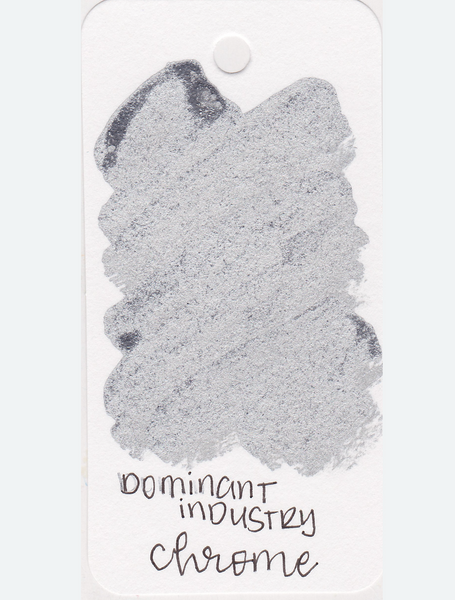 DOMINANT
INDUSTRY
chrome